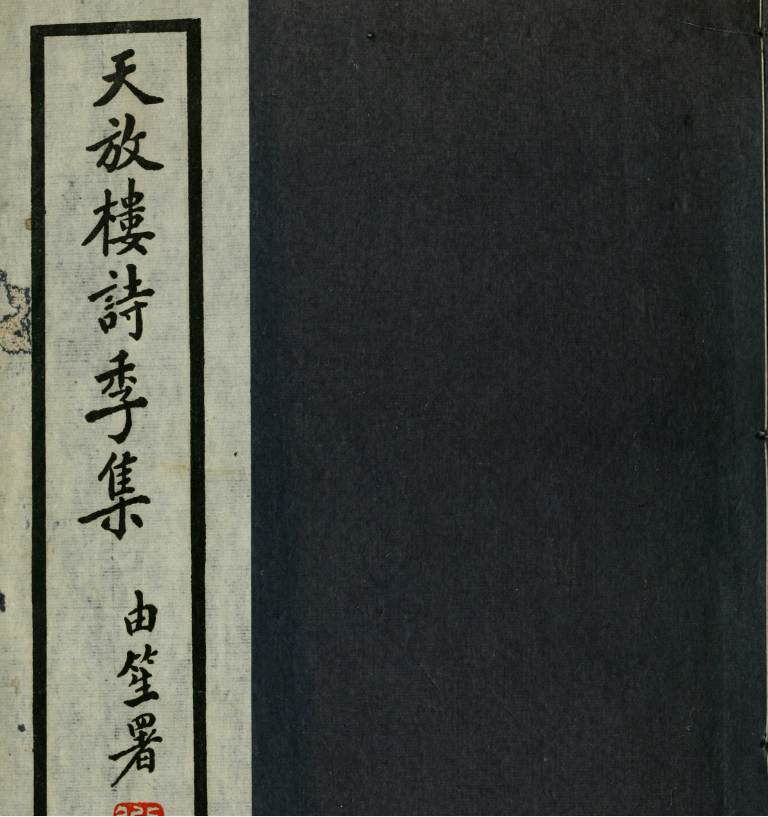 天放樓詩季集
由笙署